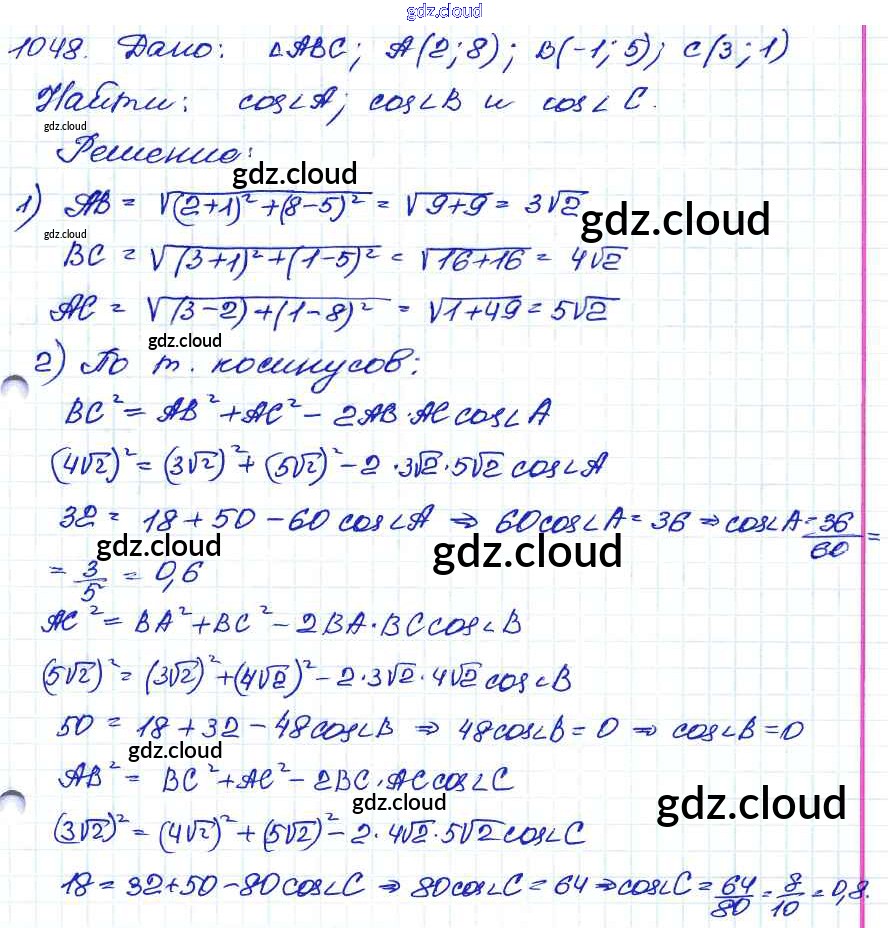 gdz.cloud
1048. Дано: △ABC; A(2;8); B(-1;5); C(3;1)
Найти: cos∠A; cos∠B и cos∠C.
gdz.cloud
Решение:
gdz.cloud
1) AB = √((2+1)²+(8-5)²) = √(9+9) = 3√2
gdz.cloud
gdz.cloud
BC = √((3+1)²+(1-5)²) = √(16+16) = 4√2
AC = √((3-2)+(1-8)²) = √(1+49) = 5√2
gdz.cloud
2) По т. косинусов:
BC² = AB²+AC² - 2AB·AC cos∠A
(4√2)² = (3√2)²+(5√2)² - 2·3√2·5√2 cos∠A
32 = 18+50-60 cos∠A ⇒ 60cos∠A = 36 ⇒ cos∠A = 36/60 =
gdz.cloud
gdz.cloud
= 3/5 = 0,6
AC² = BA²+BC² - 2BA·BC cos∠B
(5√2)² = (3√2)²+(4√2)² - 2·3√2·4√2 cos∠B
50 = 18+32-48cos∠B ⇒ 48cos∠B = 0 ⇒ cos∠B = 0
gdz.cloud
AB² = BC²+AC² - 2BC·AC cos∠C
gdz.cloud
gdz.cloud
(3√2)² = (4√2)²+(5√2)² - 2·4√2·5√2 cos∠C
18 = 32+50-80cos∠C ⇒ 80cos∠C = 64 ⇒ cos∠C = 64/80 = 8/10 = 0,8.